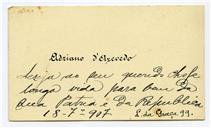 Adriano d'Azevedo
Deseja ao seu querido chefe
longa vida para bem da
sua Patria e da Republica
18-7º-907. L. da Graça 99.